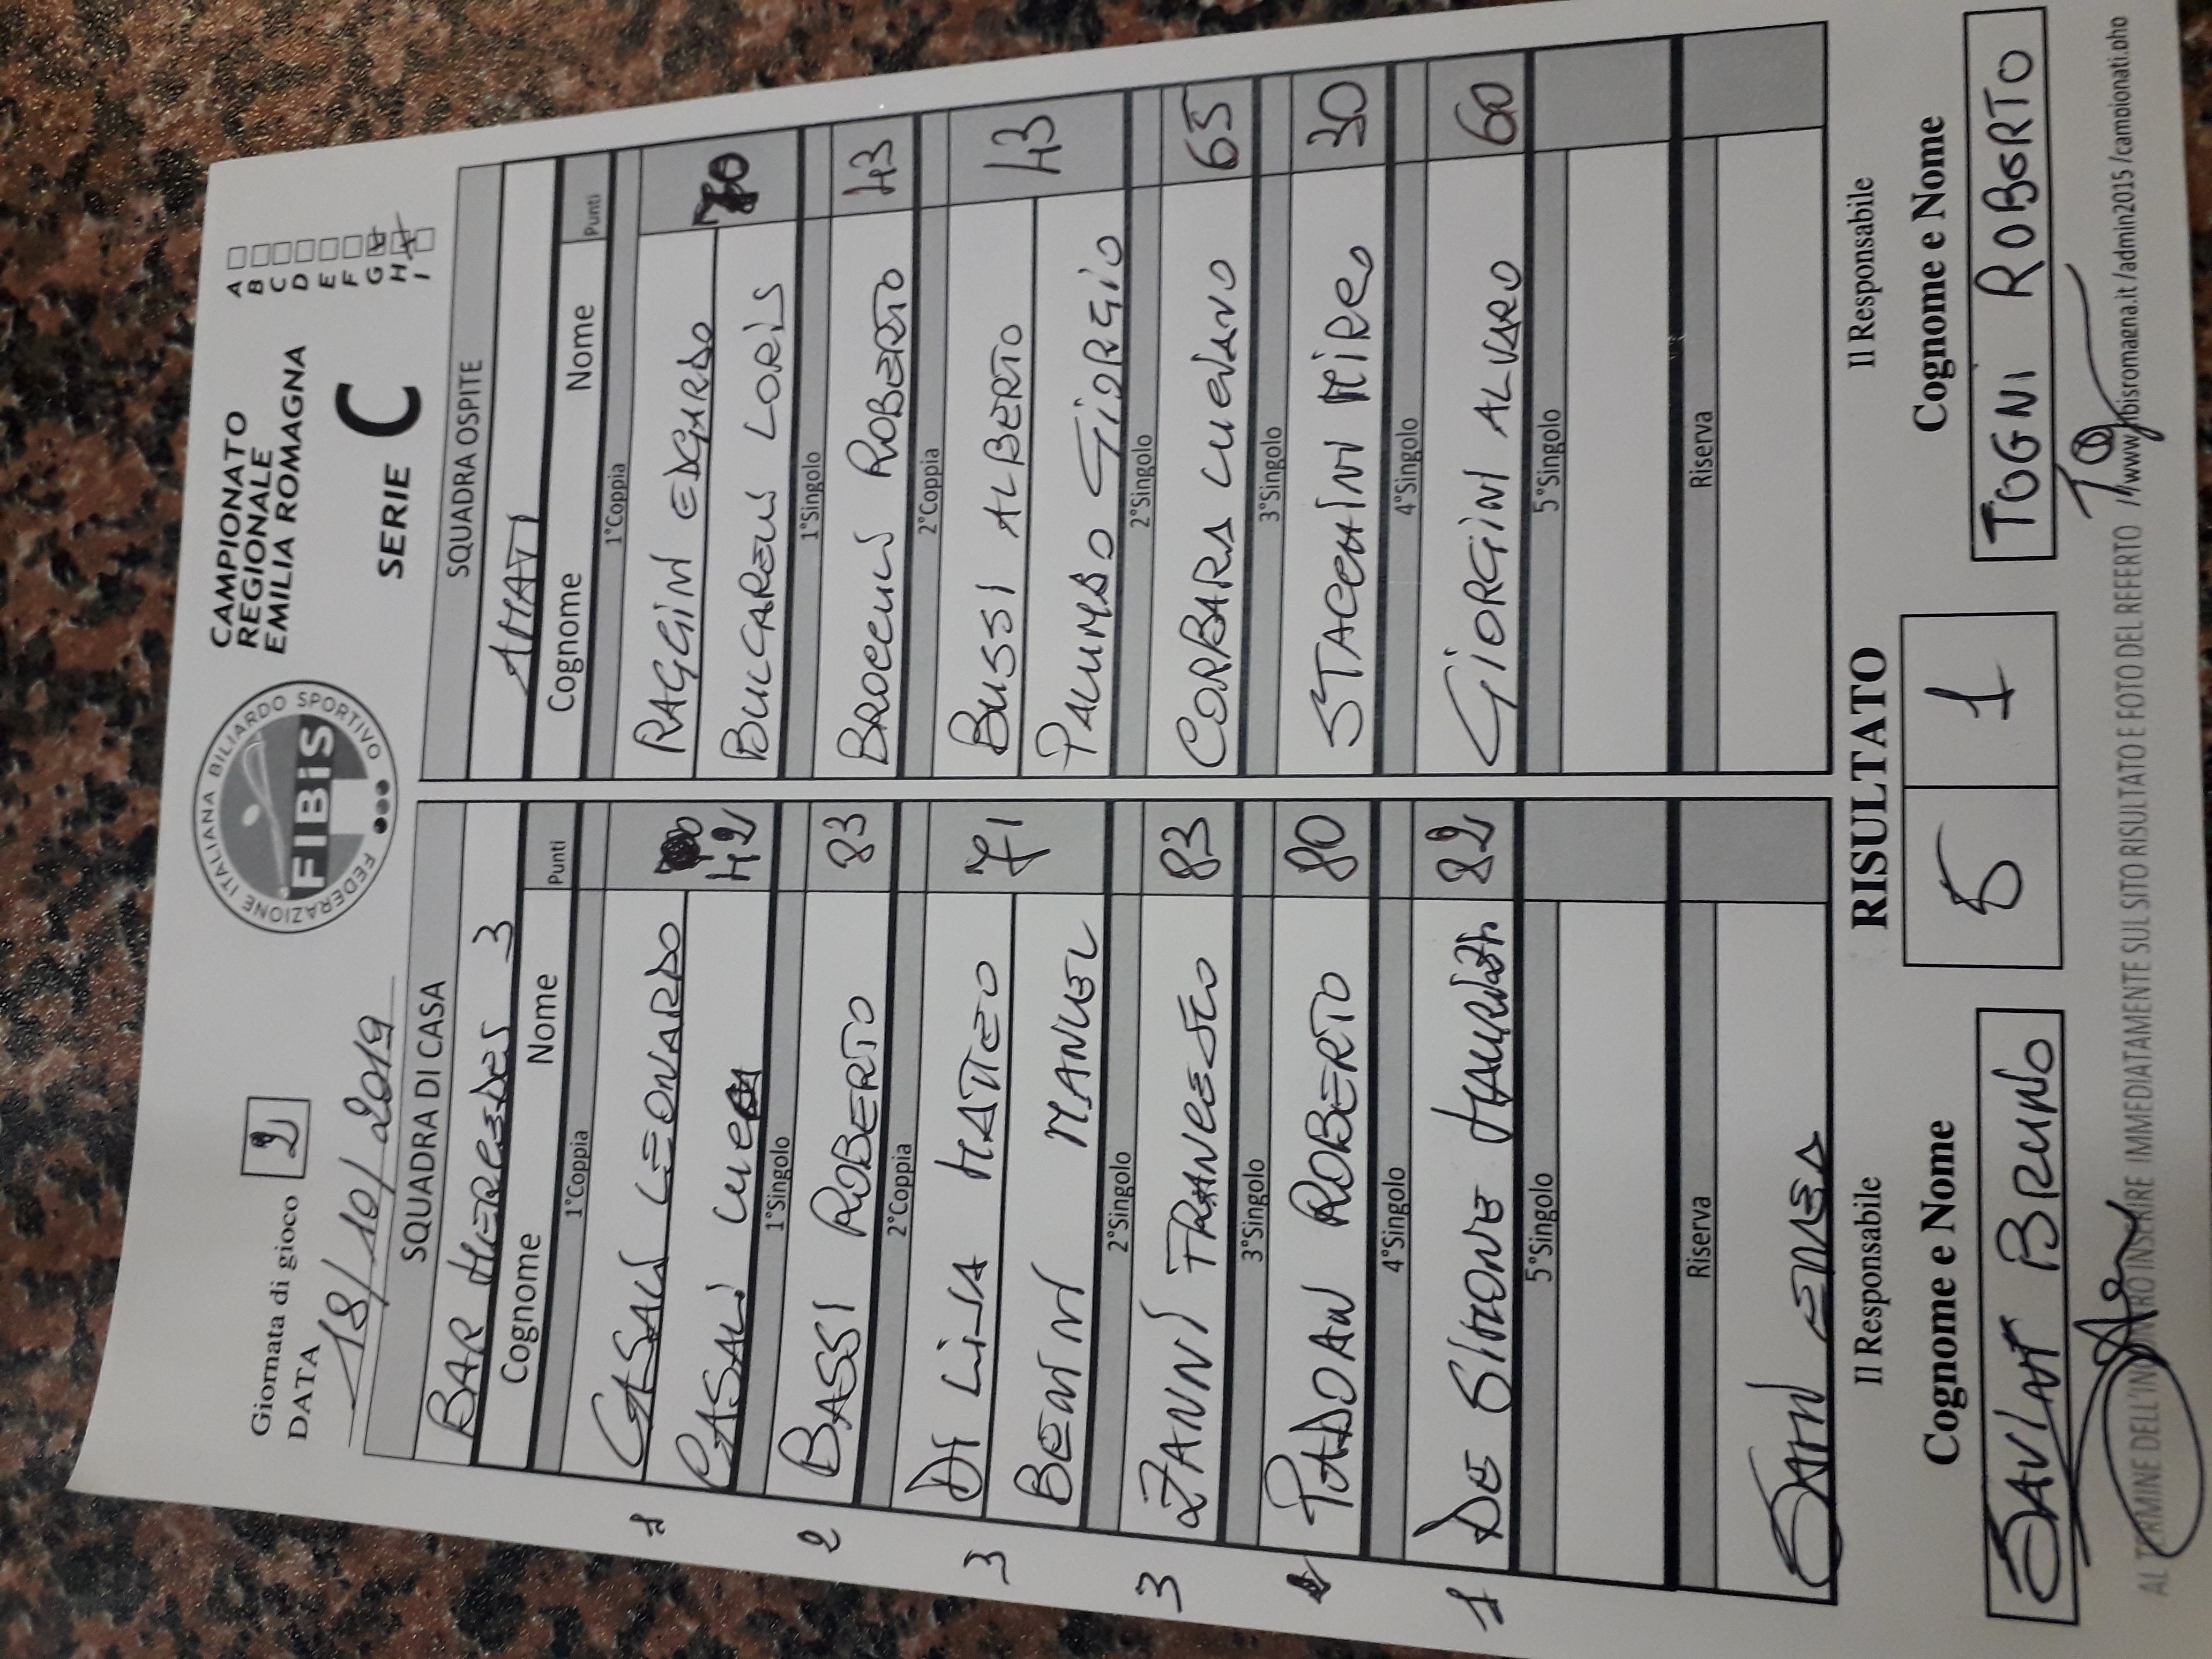 Giornata di gioco 2
DATA 18/10/2019
FEDERAZIONE ITALIANA BILIARDO SPORTIVO
FIBiS
CAMPIONATO
REGIONALE
EMILIA ROMAGNA
SERIE C
A
B
C
D
E
F
G
H
I
SQUADRA DI CASA
BAR MERCEDES 3
Cognome Nome Punti
1°Coppia
1 CASALI LEONARDO
CASALI LUCA 42
1°Singolo
2 BASSI ROBERTO 83
2°Coppia
3 DI LISA MATTEO 71
BENINI MANUEL
2°Singolo
3 ZANNI FRANCESCO 83
3°Singolo
PADOAN ROBERTO 80
4°Singolo
1 DE SIMONE MAURIZIO 82
5°Singolo
Riserva
SAMI ENEA
SQUADRA OSPITE
AMATI
Cognome Nome Punti
1°Coppia
RAGGINI EDGARDO 70
BUCCARELLI LORIS
1°Singolo
BROCCULI ROBERTO 43
2°Coppia
BUSSI ALBERTO 43
PALUMBO GIORGIO
2°Singolo
CORBARA LUCIANO 65
3°Singolo
STACCHINI MIRO 30
4°Singolo
GIORGINI ALVARO 60
5°Singolo
Riserva
Il Responsabile
RISULTATO
Il Responsabile
Cognome e Nome
5 1
Cognome e Nome
SAVINI BRUNO
TOGNI ROBERTO
AL TERMINE DELL'INCONTRO INSERIRE IMMEDIATAMENTE SUL SITO RISULTATO E FOTO DEL REFERTO //www.fibisromagna.it /admin2015 /campionati.php